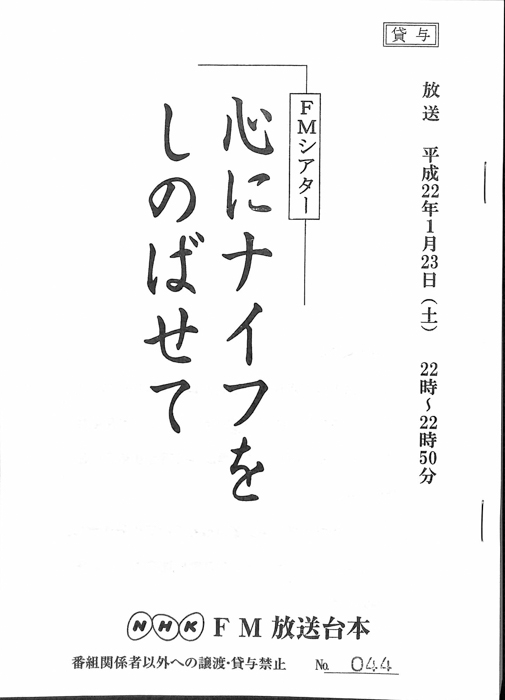 貸与
放送 平成22年1月23日(土) 22時~22時50分
FMシアター
心にナイフを
しのばせて
NHK FM 放送台本
番組関係者以外への譲渡・貸与禁止 No. 044